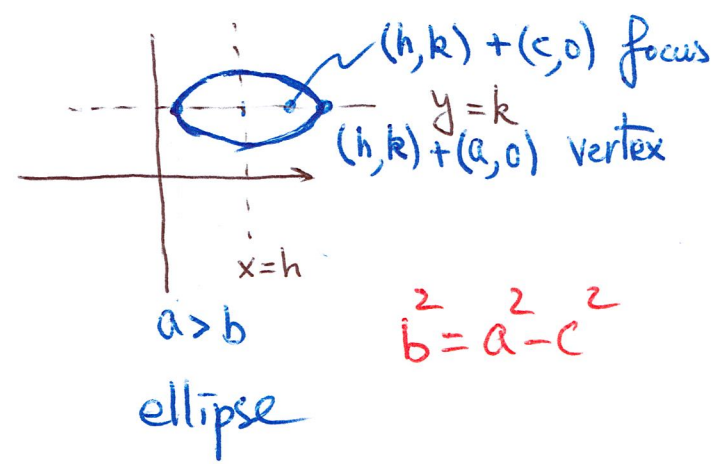 (h,k) + (c,0) focus
y = k
(h,k) + (a,0) vertex
x = h
a > b
b² = a² - c²
ellipse